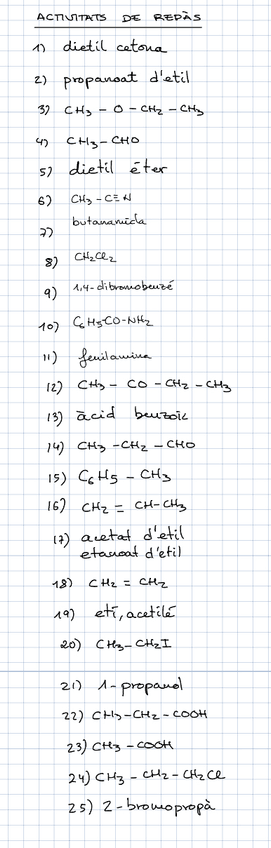 ACTIVITATS DE REPÀS
1) dietil cetona
2) propanoat d'etil
3) CH3 - O - CH2 - CH3
4) CH3-CHO
5) dietil éter
6) CH3-C≡N
7) butanamida
8) CH2Cl2
9) 1,4-dibromobenzé
10) C6H5CO-NH2
11) fenilamina
12) CH3 - CO - CH2 - CH3
13) àcid benzoïc
14) CH3 - CH2 - CHO
15) C6H5 - CH3
16) CH2 = CH-CH3
17) acetat d'etil
etanoat d'etil
18) CH2 = CH2
19) etí, acetilé
20) CH3-CH2I
21) 1-propanol
22) CH3-CH2-COOH
23) CH3-COOH
24) CH3 - CH2 - CH2Cl
25) 2-bromopropà